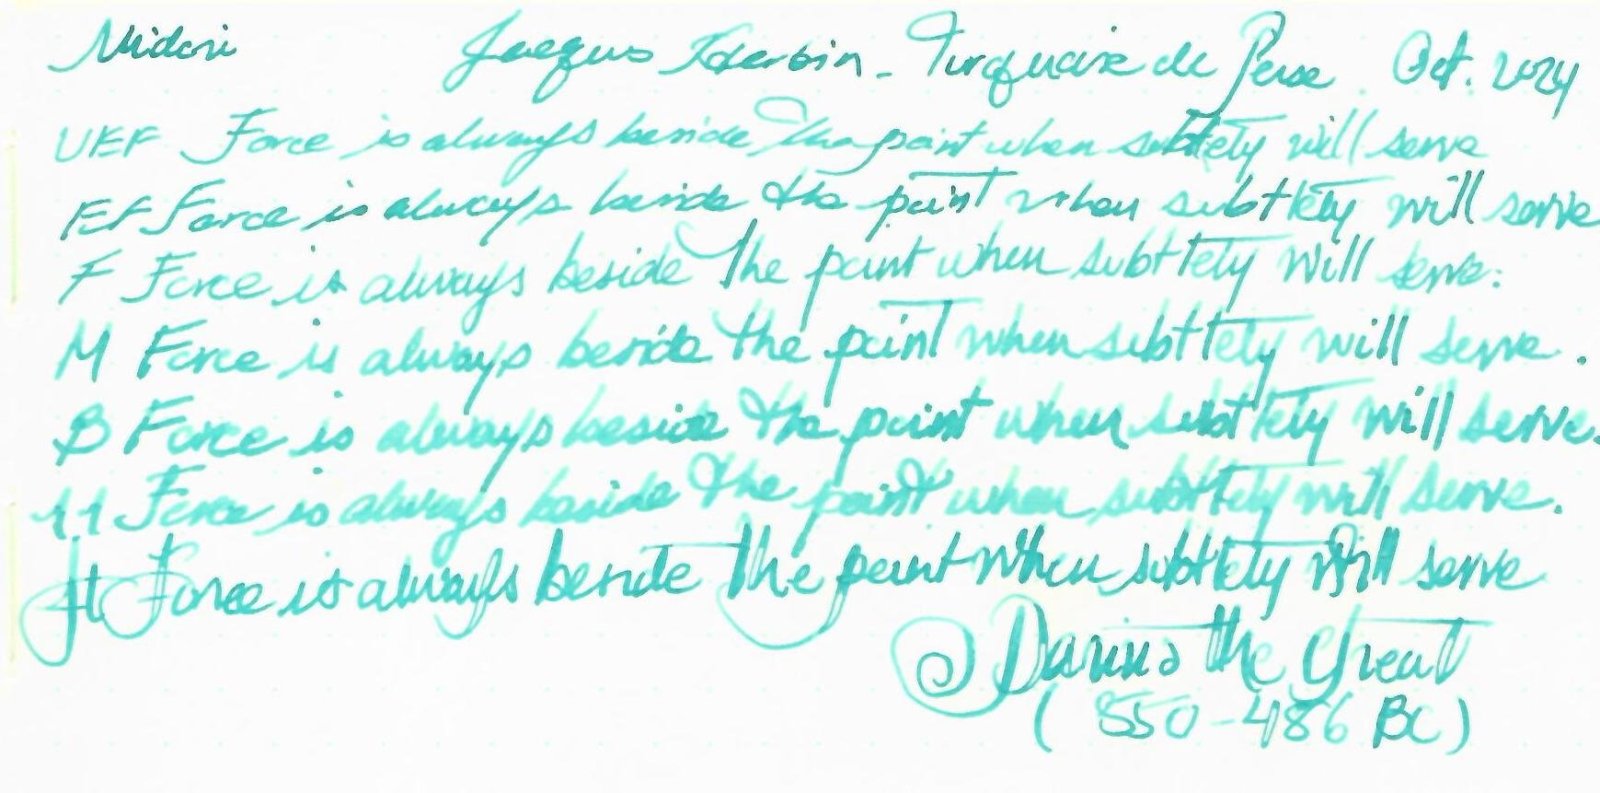 Midori Jacques Herbin - Turquoise de Perse Oct. 2024
UEF Force is always beside the point when subtlety will serve
EF Force is always beside the point when subtlety will serve
F Force is always beside the point when subtlety will serve.
M Force is always beside the point when subtlety will serve.
B Force is always beside the point when subtlety will serve.
Force is always beside the point when subtlety will serve.
Force is always beside the point when subtlety will serve
Darius the Great
(550-486 BC)